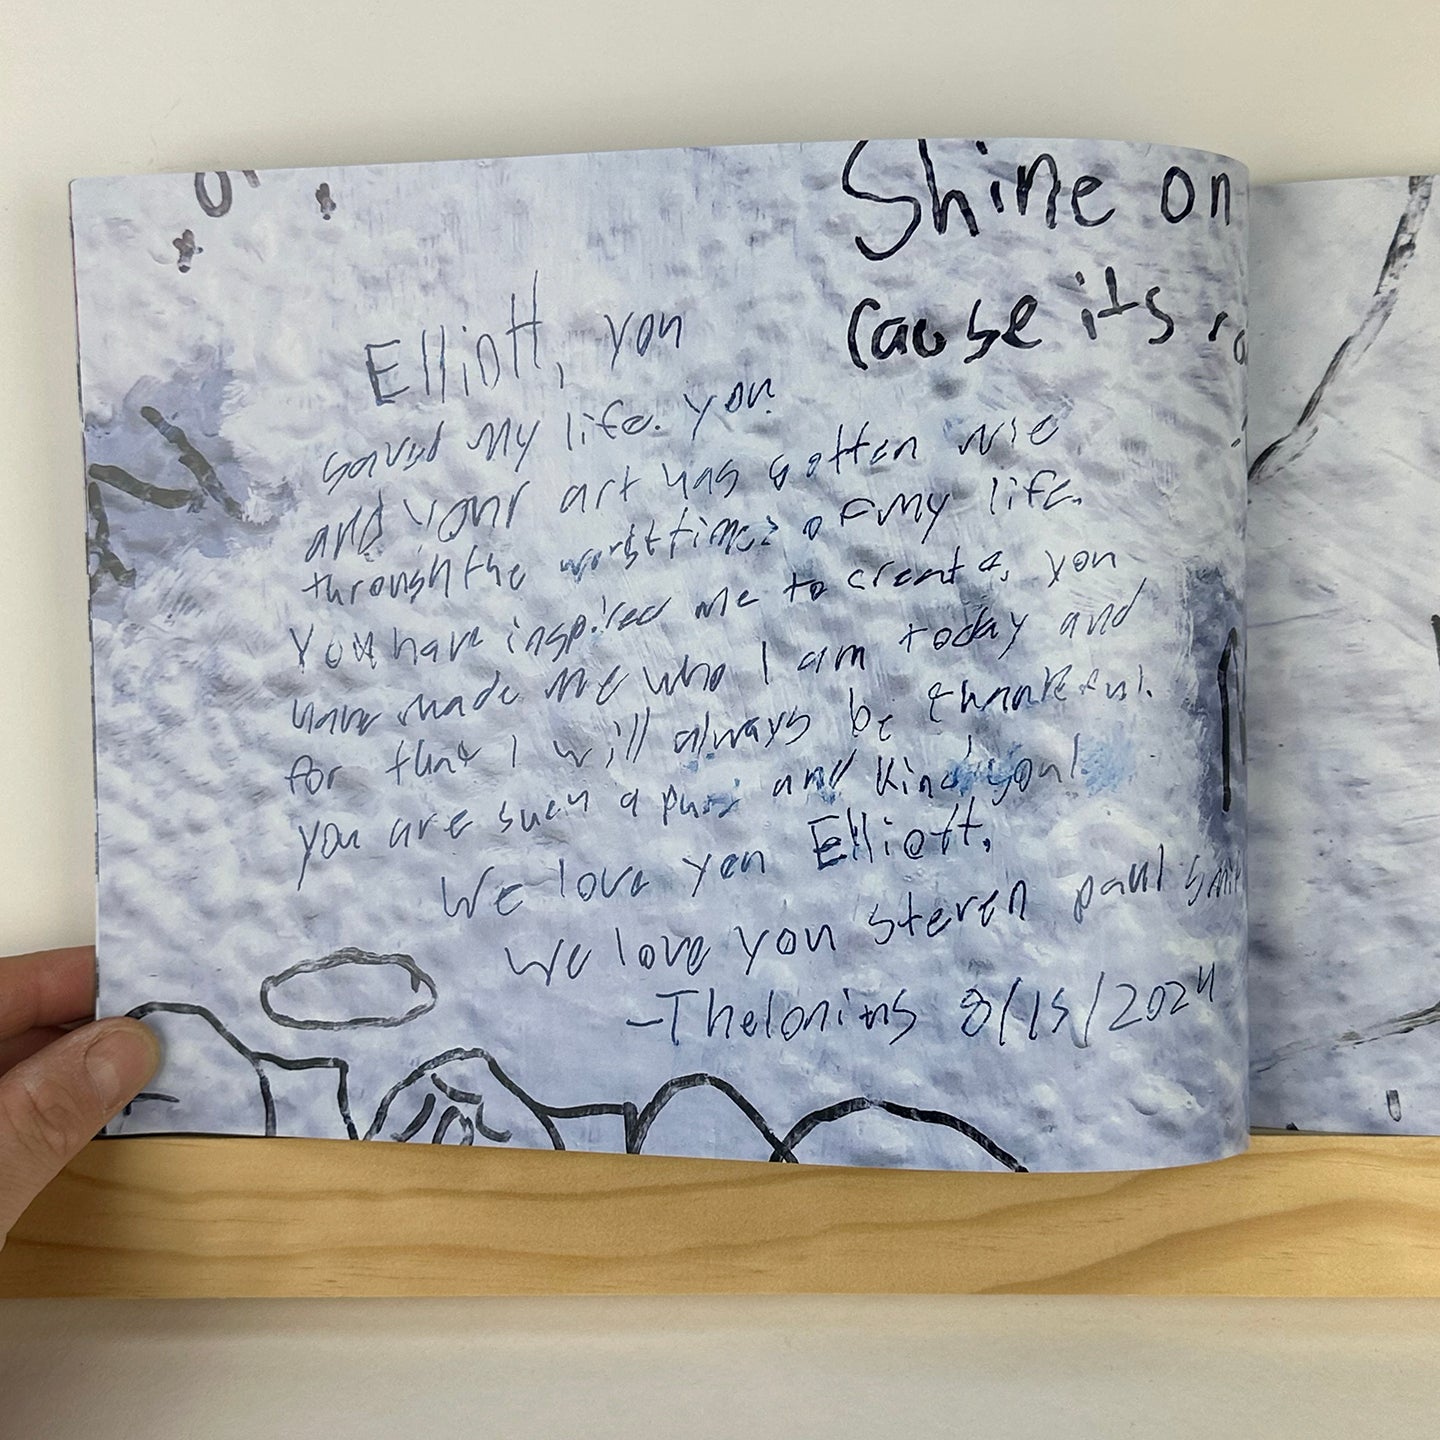 Shine on
cause its
Elliott, you
saved my life. you
and your art has gotten me
through the worst times of my life.
You have inspired me to create, you
have made me who I am today and
for that I will always be thankful.
you are such a pure and kind soul.
We love you Elliott.
We love you steven paul
-Thelonius 8/15/2024